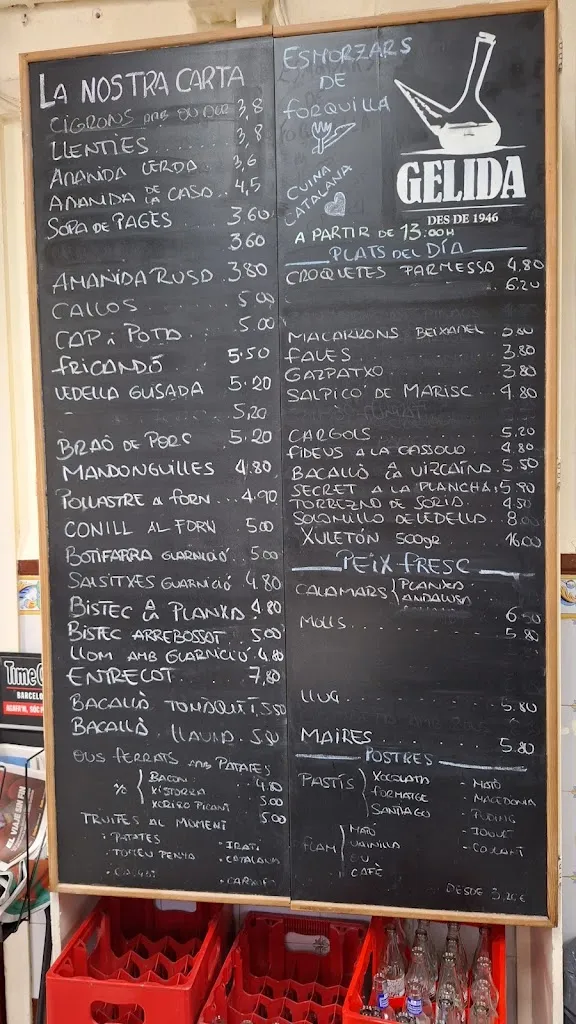 LA NOSTRA CARTA
CIGRONS AMB OU DUR 3,8
LLENTIES 3,8
AMANIDA VERDA 3,6
AMANIDA DE LA CASA 4,5
SOPA DE PAGÈS 3,60
3,60
AMANIDA RUSA 3,80
CALLOS 5,00
CAP i POTA 5.00
FRICANDÓ 5.50
VEDELLA GUISADA 5.20
5,20
BRAÓ DE PORC 5.20
MANDONGUILLES 4.80
POLLASTRE A FORN ... 4.90
CONILL AL FORN 5,00
BOTIFARRA GUARNICIÓ 5.00
SALSITXES GUARNICIÓ 4.80
BISTEC A LA PLANXA 4.80
BISTEC ARREBOSSAT 5,00
LLOM AMB GUARNICIÓ 4.80
ENTRECOT 7,80
BACALLÀ
BACALLÀ LLAUNA
OUS FERRATS AMB PATATES
BACON 4.80
XISTORRA 5.00
XORIÇO PICANT 5.00
TRUITES AL MOMENT
PATATES
CATALANA
ESMORZARS
DE
FORQUILLA
CUINA
CATALANA
GELIDA
DES DE 1946
A PARTIR DE 13:00H
PLATS DEL DÍA
CROQUETES PARMESSA 4.80
6.20
MACARRONS
FAVES 3.80
GAZPATXO 3.80
SALPICÓ DE MARISC 4.80
CARGOLS 5,20
FIDEUS A LA CASSOLA 4.80
BACALLÀ A LA VIZCAÍNA 5.50
SECRET A LA PLANCHA 5.90
TORREZNO DE SORIA 4.50
SOLOMILLO DE VEDELLA
XULETÓN 500gr 16,00
PEIX FRESC
CALAMARS PLANXA
ANDALUSA
6.50
MOLLS 5.80
LLUÇ 5.80
MAIRES 5.80
POSTRES
PASTÍS XOCOLATA
FORMATGE
SANTIAGO
MATÓ
MACEDONIA
PUDING
IOGURT
COULANT
FLAM MATÓ
VAINILLA
OU
CAFÈ
DESDE
Time O
BARCELO
EL VIAJE SIN FIN